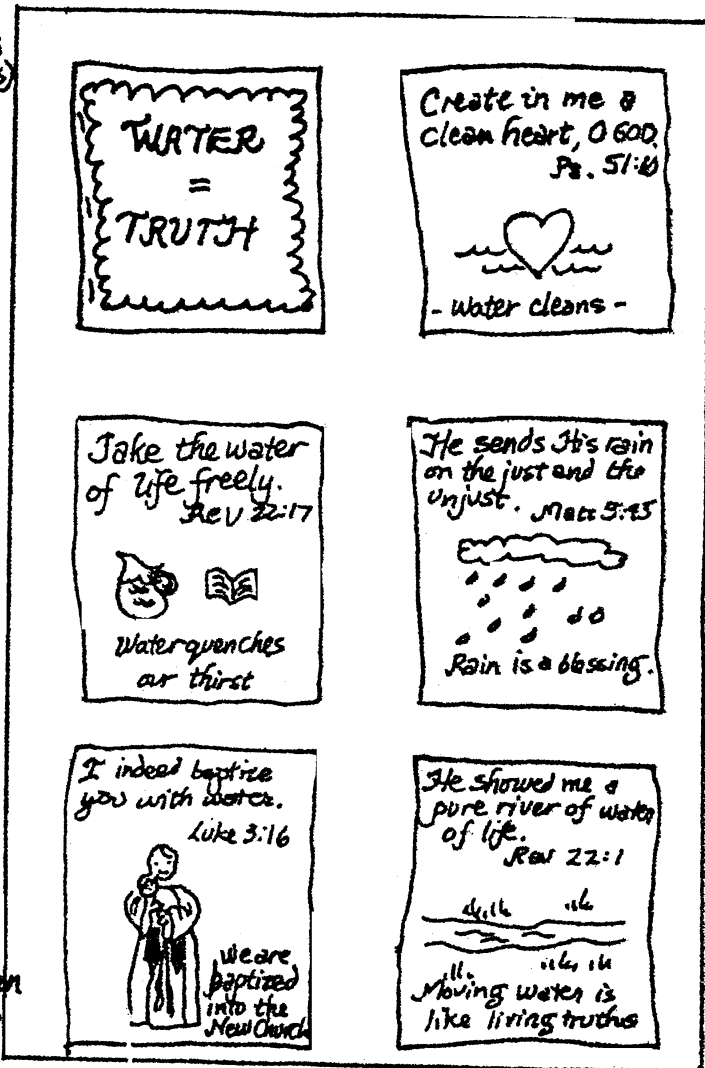 WATER
=
TRUTH
Create in me a
clean heart, O GOD.
Ps. 51:10
- Water cleans -
Take the water
of life freely.
Rev 22:17
Water quenches
our thirst
He sends His rain
on the just and the
unjust. Matt 5:45
Rain is a blessing.
I indeed baptize
you with water.
Luke 3:16
We are
baptized
into the
New Church
He showed me a
pure river of water
of life.
Rev 22:1
Moving water is
like living truths